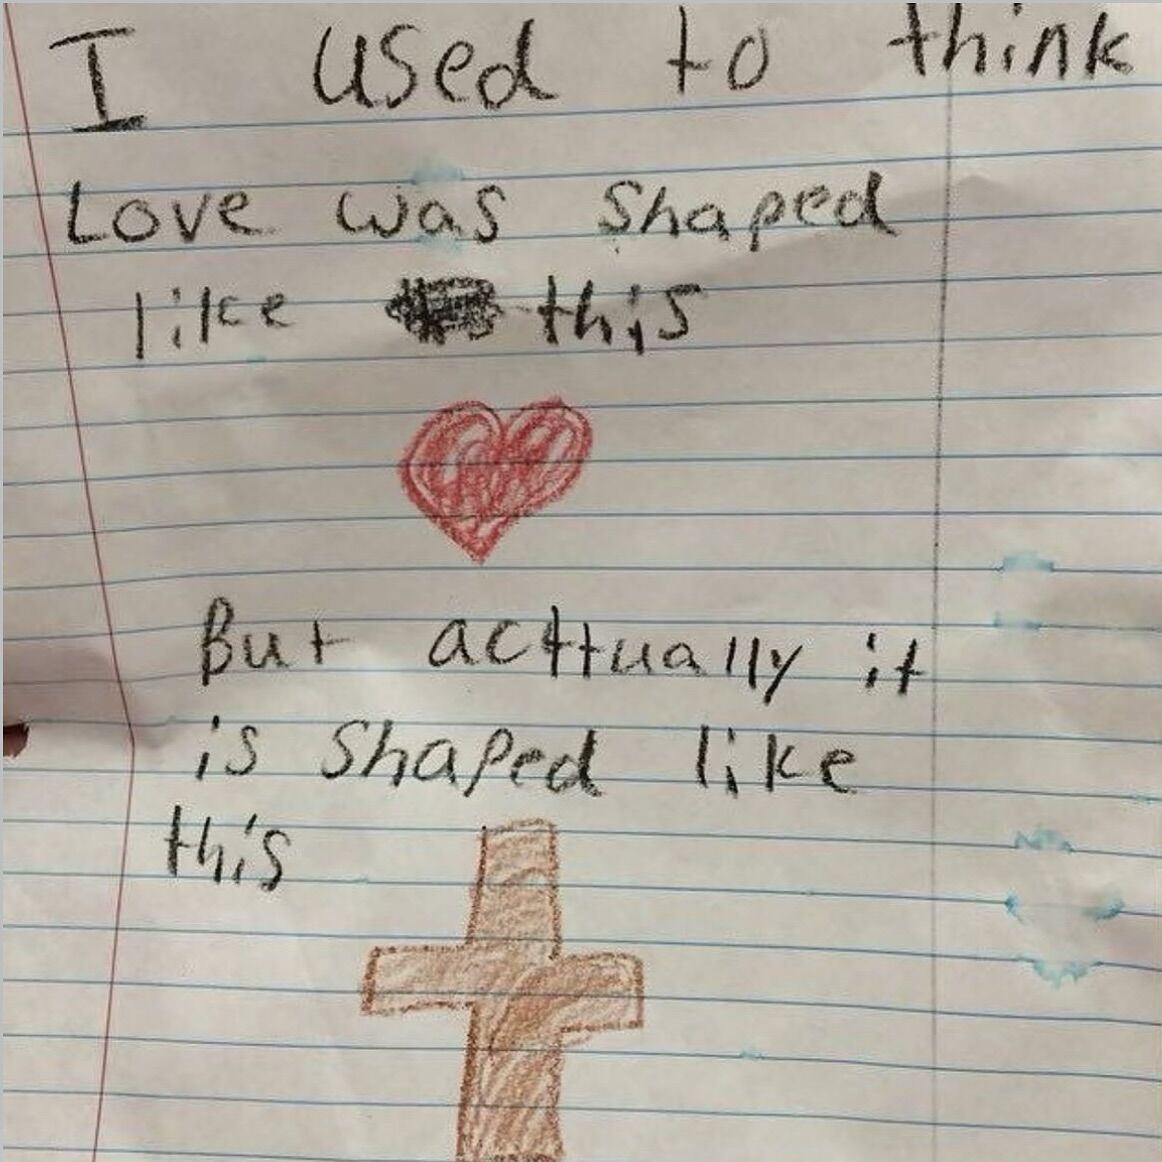 I used to think
Love was shaped
like this
But acttually it
is shaped like
this